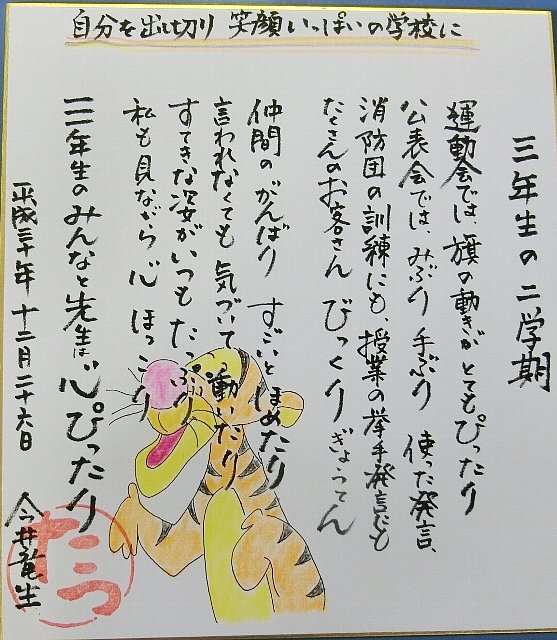 自分を出し切り 笑顔いっぱいの学校に
三年生の二学期
運動会では、旗の動きがとてもぴったり
公表会では、みぶり 手ぶり 使った発言、
消防団の訓練にも、授業の挙手発言にも
たくさんのお客さん びっくりぎょうてん
仲間のがんばり すごいとほめたり
言われなくても 気づいて 動いたり
すてきな姿がいつもたっぷり
私も見ながら 心 ほっこり
三年生のみんなと先生は 心ぴったり
平成三十年 十二月二十六日
今井竜生
たつ